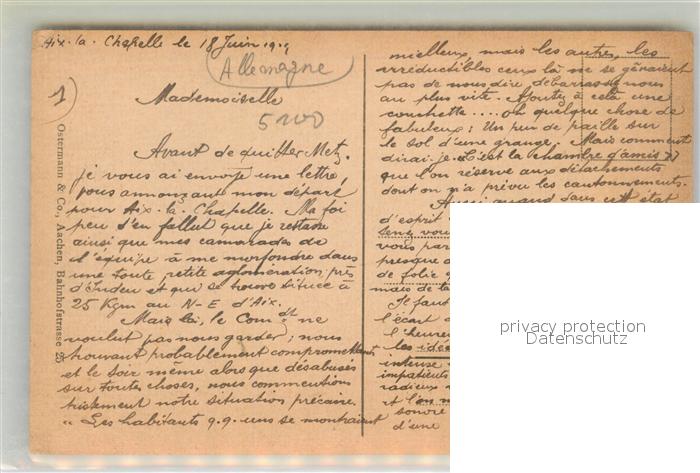 Aix-la-Chapelle le 18 Juin 1919
Allemagne
1)
Mademoiselle
5100
Avant de quitter Metz,
je vous ai envoyé une lettre,
vous annonçant mon départ
pour Aix-la-Chapelle. Ma foi
peu s'en fallut que je restasse
ainsi que mes camarades de
l'équipe à me morfondre dans
une toute petite agglomération près
d'Inden et qui se trouve située à
25 Kgm au N-E d'Aix.
Mais là, le Comdt ne
voulut pas nous garder; nous
trouvant probablement compromettants
et le soir même alors que désabusés
sur toutes choses, nous commentions
tristement notre situation précaire.
" Les habitants q.q. uns se montraient
mielleux, mais les autres, les
irréductibles ceux là ne se gênaient
pas de nous dire, débarrassez nous
au plus vite. Ajoutez à cela une
couchette.... oh quelque chose de
fabuleux: Un peu de paille sur
le sol d'une grange. Mais comment
dirai-je. C'est la chambre d'amis
que l'on réserve aux détachements
dont on n'a prévu les cantonnements.
Aussi quand dans cet état
d'esprit
vous par
presque
de folie
mais de la
Il faut
l'écart
l'heure
les idées
intense
impatients
radieux
et l'on
sonore
d'une
Ostermann & Co., Aachen, Bahnhofstrasse 25
privacy protection
Datenschutz